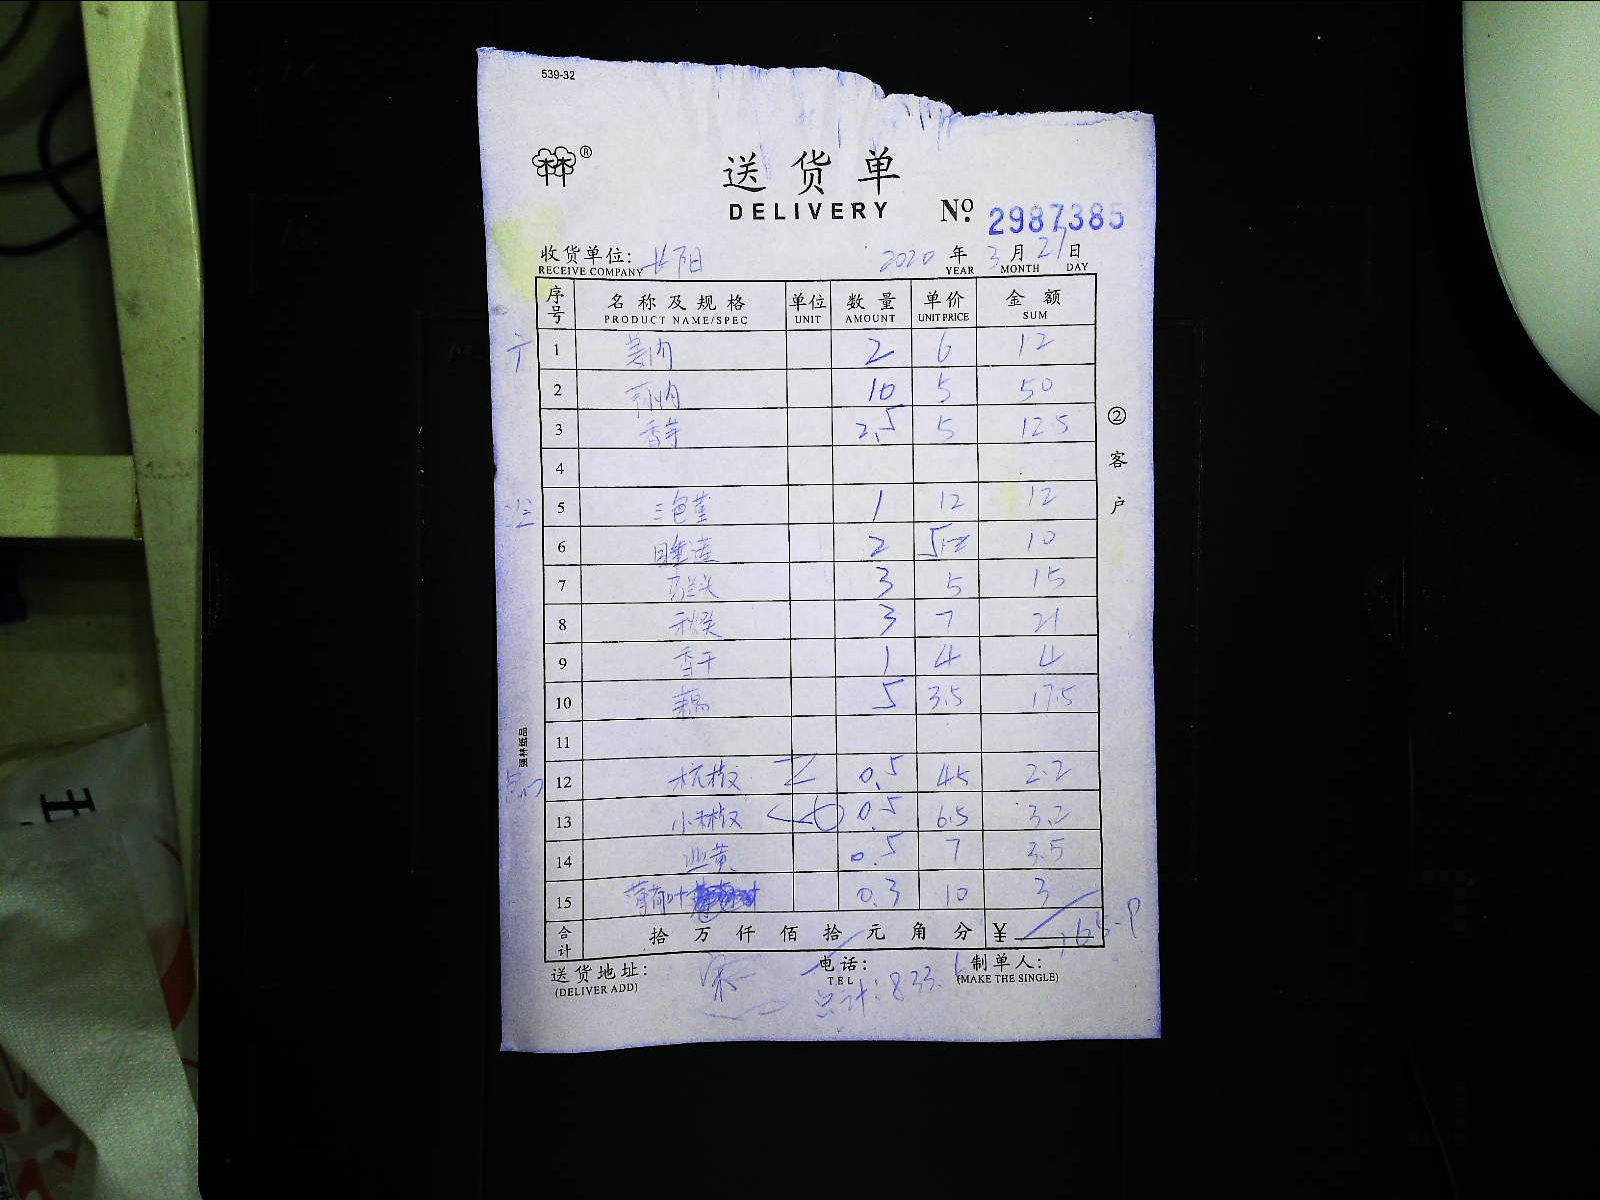 539-32
®
送货单
DELIVERY
No. 2987385
收货单位：长阳
RECEIVE COMPANY
2020年3月21日
YEAR MONTH DAY
序号 名称及规格 单位 数量 单价 金额
PRODUCT NAME/SPEC UNIT AMOUNT UNIT PRICE SUM
1 姜肉 2 6 12
2 10 5 50
3 香芋 2.5 5 12.5
4
5 1 12 12
6 睡莲 2 5 10
7 3 5 15
8 秋葵 3 7 21
9 香干 1 4 4
10 藕 5 3.5 17.5
11
12 杭椒 0.5 45 2.2
13 小米椒 0.5 6.5 3.2
14 韭黄 0.5 7 3.5
15 薄荷叶 0.3 10 3
合计 拾万仟佰拾元角分 ¥
送货地址：
(DELIVER ADD)
电话：
TEL
制单人：
(MAKE THE SINGLE)
总计：833.
②客户
强林纸品
王